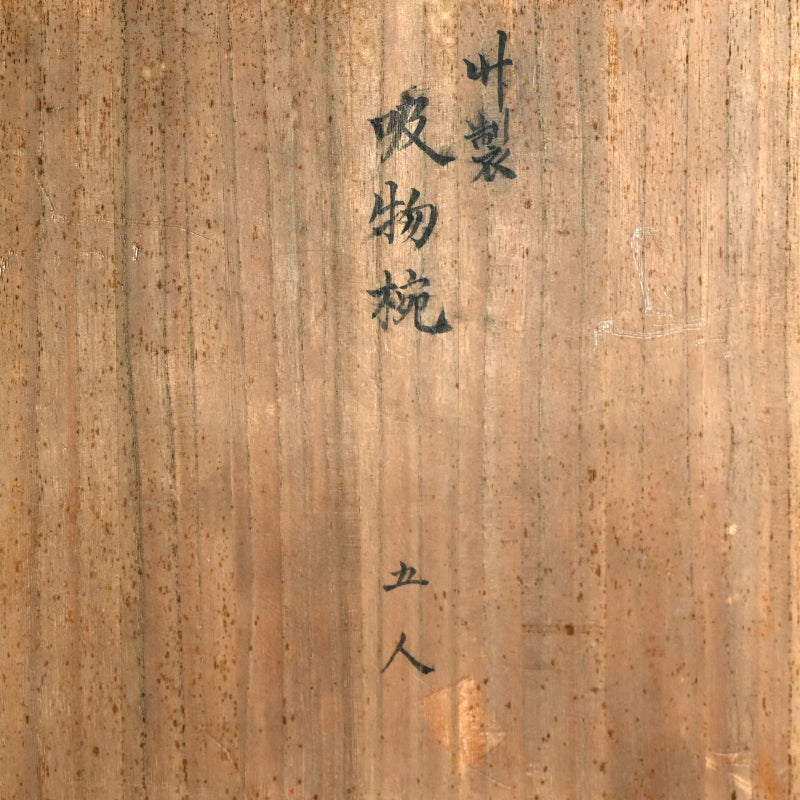 竹製
吸物椀
五人